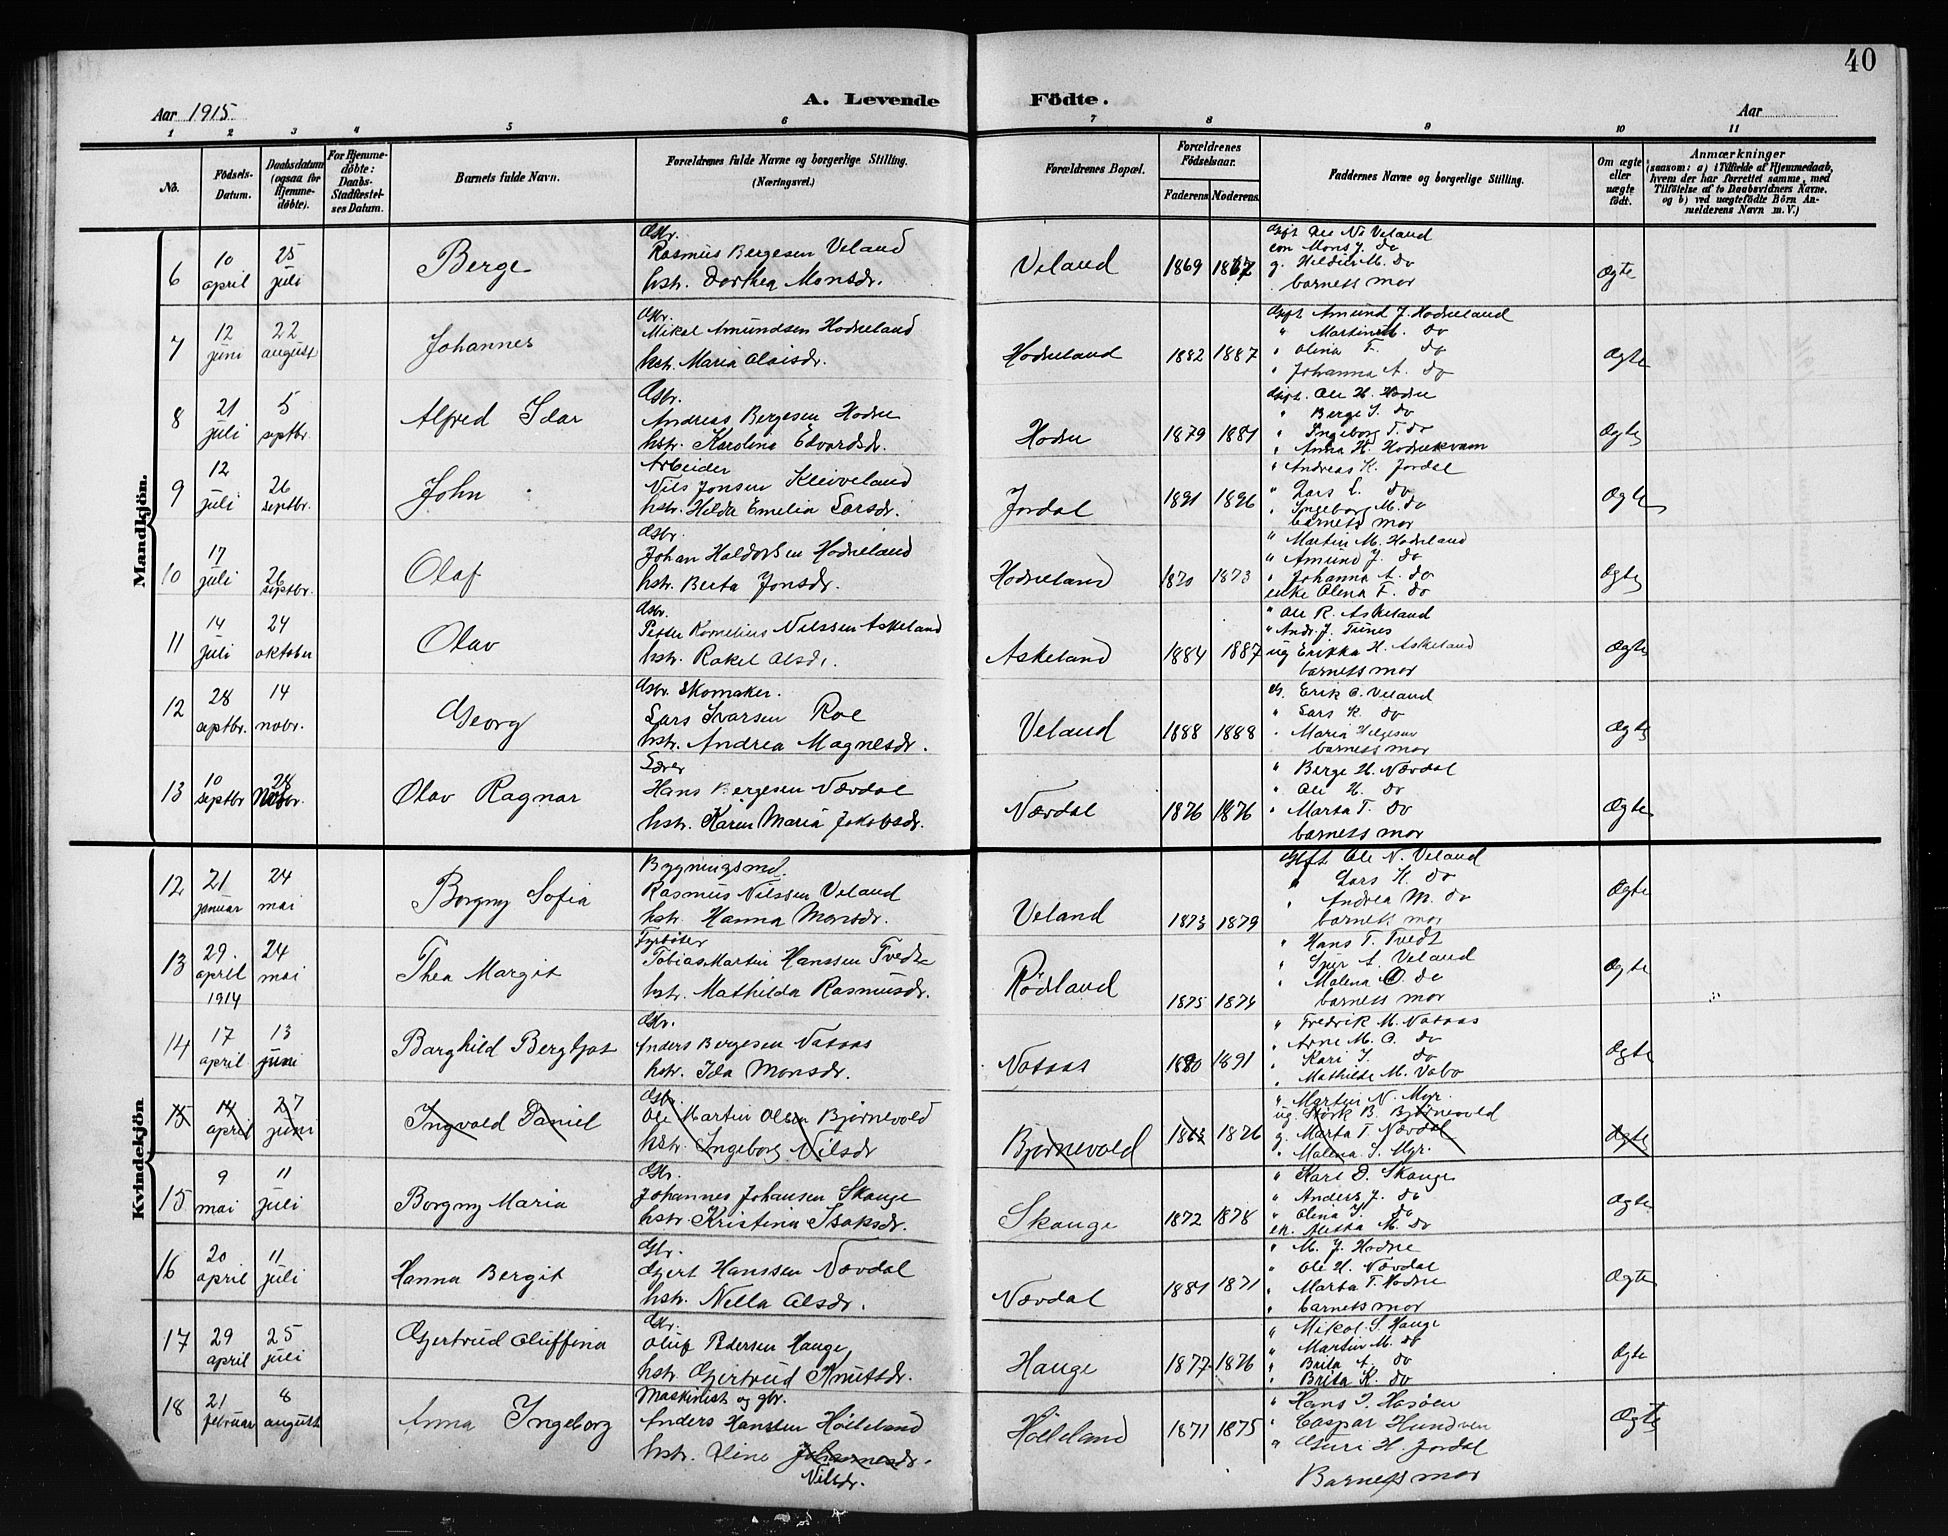 40
Aar 1915
A. Levende
Födte.
Aar
1 2 3 4 5 6 7 8 9 10 11
No.
Fødsels-Datum.
Daabsdatum (ogsaa for Hjemme-døbte).
For Hjemme-døbte: Daabs-Stadfæstel-ses Datum.
Barnets fulde Navn.
Forældrenes fulde Navne og borgerlige Stilling. (Næringsvei.)
Forældrenes Bopæl.
Forældrenes Fødselsaar.
Faderens Moderens
Faddernes Navne og borgerlige Stilling.
Om ægte eller uægte født.
Anmærkninger
(saasom: a) i Tilfælde af Hjemmedaab, hvem der har forrettet samme, med Tilföielse af to Daabsvidners Navne. og b) ved uægtefödte Börn An-melderens Navn m. V.)
Mandkjön.
6
10 april
25 juli
Berge
Gbr.
Rasmus Bergesen Veland
hstr. Dorthea Monsdr.
Veland
1869 1867
Gift Ole N. Veland
Mons J. do
g. Hilda M. do
barnets mor
Ægte
7
12 juni
22 august
Johannes
Gbr.
Mikal Amundsen Hodneland
hstr. Maria Olaisdr.
Hodneland
1882 1887
Gift Amund J. Hodneland
" Martin M. do
" Olina T. do
" Johanna A. do
Ægte
8
21 juli
5 septbr.
Alfred Idar
Gbr.
Andreas Bergesen Hodne
hstr. Karolina Edvardsdr.
Hodne
1879 1881
Gift. Ole H. Hodne
" Berge I. do
" Ingeborg T. do
" Anna H. Hodnekvam
Ægte
9
12 juli
26 septbr.
John
Arbeider
Nils Jonsen Kleiveland
hstr. Hilda Emelia Larsdr.
Jordal
1891 1896
" Andreas K. Jordal
" Lars L. do
" Ingeborg M. do
barnets mor
Ægte
10
17 juli
26 septbr.
Olaf
Gbr.
Johan Haldorsen Hodneland
hstr. Berta Jonsdr.
Hodneland
1870 1873
" Martin M. Hodneland
" Amund J. do
" Johanna A. do
enke Olena F. do
Ægte
11
14 juli
24 oktober
Olav
Gbr.
Peder Kornelius Nilssen Askeland
hstr. Rakel Olsdr.
Askeland
1884 1887
" Ole R. Askeland
" Andr. J. Tunes
ug Erikka H. Askeland
barnets mor
Ægte
12
28 septbr.
14 nobr.
Georg
Gbr. Skomaker.
Lars Ivarsen Roe
hstr. Andrea Magnesdr.
Veland
1888 1888
G. Erik O. Veland
" Lars K. do
" Maria Helgesen
barnets mor
Ægte
13
10 septbr
28 Nobr.
Olav Ragnar
Lærer
Hans Bergesen Nævdal
hstr. Karen Maria Jakobsdr.
Nævdal
1876 1876
" Berge H. Nævdal
" Ole H. do
" Marta T. do
barnets mor
Ægte
Kvindekjön
12
21 januar
24 mai
Borgny Sofia
Bygningsmd.
Rasmus Nilssen Veland
hstr. Hanna Monsdr.
Veland
1873 1879
Gift Ole N. Veland
" Lars K. do
" Andrea M. do
barnets mor
Ægte
13
29. april 1914
24 mai
Thea Margit
Fyrbøter
Tobias Martin Hanssen Tvedt
hstr. Mathilda Rasmusdr.
Rødland
1875 1874
" Hans T. Tvedt
" Sjur A. Veland
" Malena O. do
barnets mor
Ægte
14
17 april
13 juni
Borghild Bergljot
Gbr.
Anders Bergesen Nataas
hstr. Ida Monsdr.
Nataas
1890 1891
" Fredrik M. Nataas
" Arne M. O. do
" Kari I. do
" Mathilde M. Vabo
Ægte
15
14 april
27 juni
Ingvald Daniel
Gbr.
Ole Martin Olsen Bjørnevold
hstr. Ingeborg Nilsdr
Bjørnevold
1863 1876
" Martin N. Myr.
ug. Størk B. Bjørnevold
g. Marta T. Nævdal
" Malena S. Myr.
Ægte
15
9 mai
11 juli
Borgny Maria
Gbr.
Johannes Johansen Skauge
hstr. Kristina Isaksdr.
Skauge
1872 1878
" Karl D. Skauge
" Anders J. do
" Olina I. do
M. do
Ægte
16
20 april
11 juli
Hanna Bergit
Gbr.
Gjert Hanssen Nævdal
hstr. Nella Olsdr.
Nævdal
1881 1871
" M. J. Hodne
" Ole H. Nævdal
" Marta T. Hodne
" barnets mor
Ægte
17
29 april
25 juli
Gjertrud Oluffina
Gbr.
Oluf Pedersen Hauge
hstr. Gjertrud Knutsdr.
Hauge
1877 1876
" Mikal S. Hauge
" Martin M. do
" Brita A. do
" Brita K. do
Ægte
18
21 februar
8 august
Anna Ingeborg
Maskinist og gbr.
Anders Hanssen Hölleland
hstr. Line Johannesdr.
Nilsdr.
Hölleland
1871 1875
" Hans I. Hasøen
" Caspar Hundven
" Guri H. Jordal
Barnets mor
Ægte